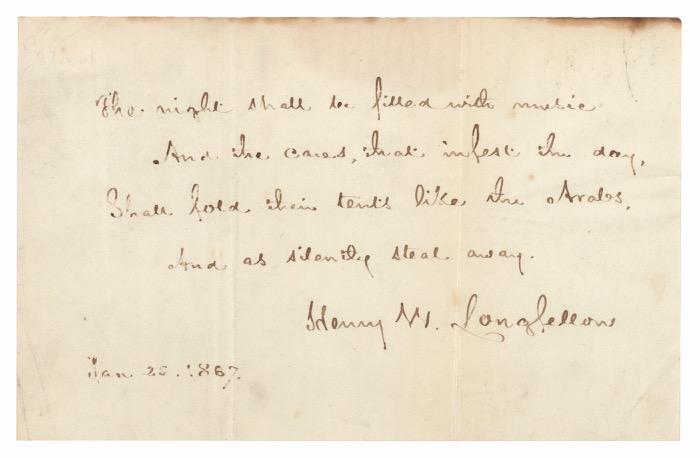 The night shall be filled with music
And the cares, that infest the day,
Shall fold their tents like the Arabs,
And as silently steal away.
Henry W. Longfellow
Jan. 25. 1867.